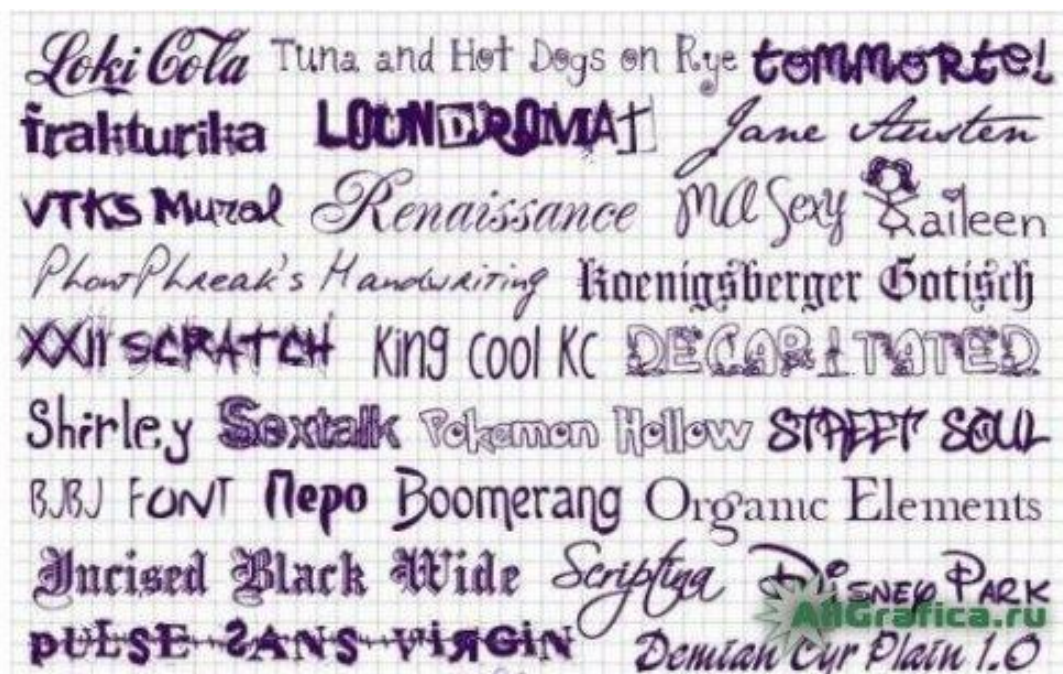 Loki Cola Tuna and Hot Dogs on Rye tommorte!
frakturika LOUNDROMAT Jane Austen
VTKS Mural Renaissance MA Sexy Raileen
PhontPhreak's Handwriting Koenigsberger Gotisch
XXII SCRATCH King cool KC DECAPITATED
Shirley Sextalk Pokemon Hollow STREET SOUL
BJBJ FONT Перо Boomerang Organic Elements
Incised Black Wide Scriptina Disney Park
AllGrafica.ru
pULSE SANS ViRGiN Demian Cyr Plain 1.0